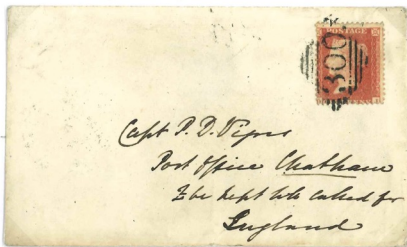 POSTAGE
300
Capt P. D. Vigors
Post Office Chatham
to be kept till called for
England